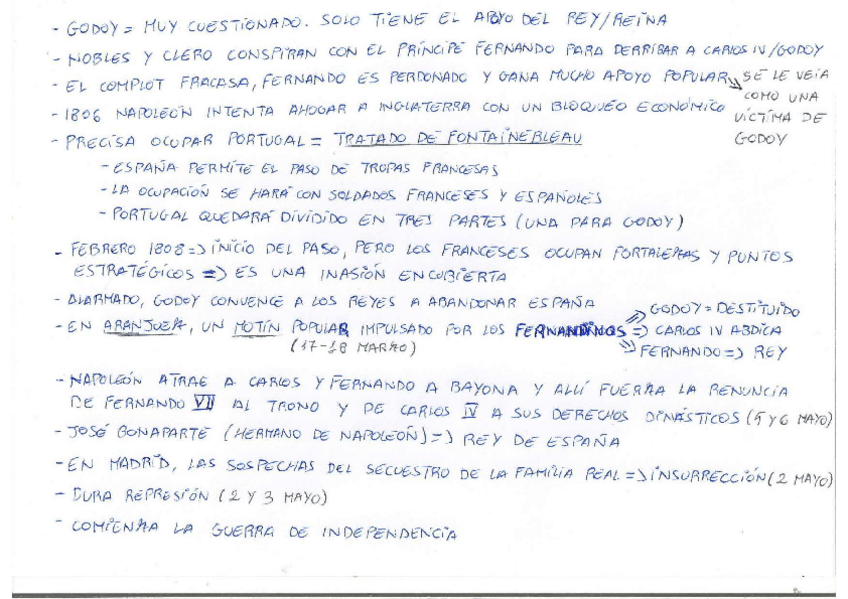 - GODOY = MUY CUESTIONADO. SOLO TIENE EL APOYO DEL REY/REINA
- NOBLES Y CLERO CONSPIRAN CON EL PRÍNCIPE FERNANDO PARA DERRIBAR A CARLOS IV/GODOY
- EL COMPLOT FRACASA, FERNANDO ES PERDONADO Y GANA MUCHO APOYO POPULAR → SE LE VEÍA
COMO UNA
VÍCTIMA DE
GODOY
- 1806 NAPOLEÓN INTENTA AHOGAR A INGLATERRA CON UN BLOQUEO ECONÓMICO
- PRECISA OCUPAR PORTUGAL = TRATADO DE FONTAINEBLEAU
- ESPAÑA PERMITE EL PASO DE TROPAS FRANCESAS
- LA OCUPACIÓN SE HARÁ CON SOLDADOS FRANCESES Y ESPAÑOLES
- PORTUGAL QUEDARÁ DIVIDIDO EN TRES PARTES (UNA PARA GODOY)
- FEBRERO 1808 => INICIO DEL PASO, PERO LOS FRANCESES OCUPAN FORTALEZAS Y PUNTOS
ESTRATÉGICOS => ES UNA INASIÓN ENCUBIERTA
- ALARMADO, GODOY CONVENCE A LOS REYES A ABANDONAR ESPAÑA
- EN ARANJUEZ, UN MOTÍN POPULAR IMPULSADO POR LOS FERNANDINOS => GODOY = DESTITUIDO
=> CARLOS IV ABDICA
=> FERNANDO => REY
(17-18 MARZO)
- NAPOLEÓN ATRAE A CARLOS Y FERNANDO A BAYONA Y ALLÍ FUERZA LA RENUNCIA
DE FERNANDO VII AL TRONO Y DE CARLOS IV A SUS DERECHOS DINÁSTICOS (5 Y 6 MAYO)
- JOSÉ BONAPARTE (HERMANO DE NAPOLEÓN) => REY DE ESPAÑA
- EN MADRID, LAS SOSPECHAS DEL SECUESTRO DE LA FAMILIA REAL => INSURRECCIÓN (2 MAYO)
- DURA REPRESIÓN (2 Y 3 MAYO)
- COMIENZA LA GUERRA DE INDEPENDENCIA